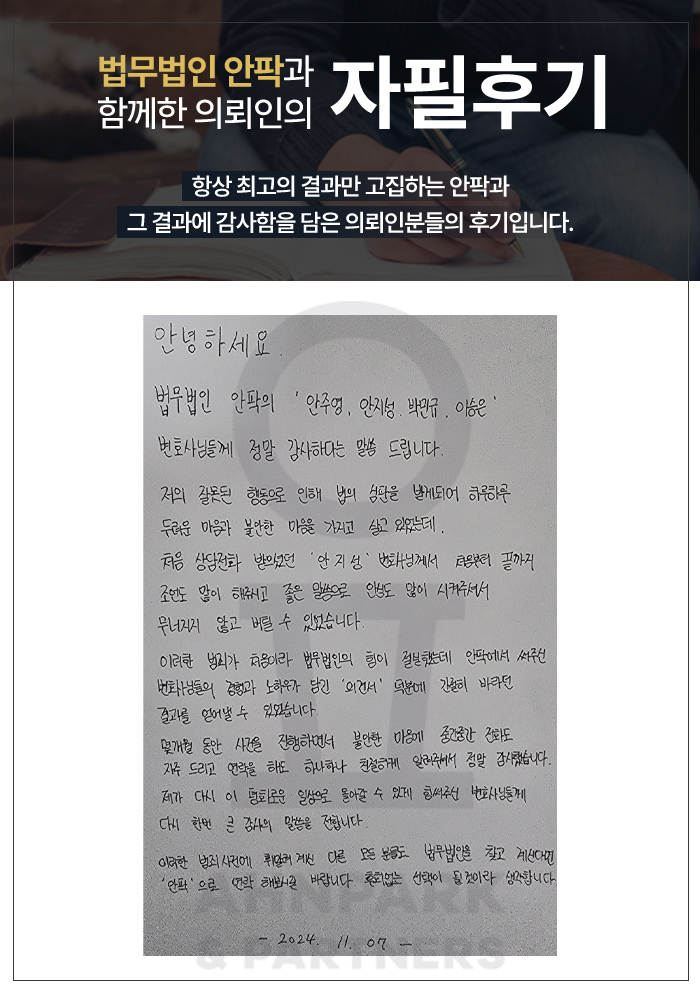 법무법인 안팍과
함께한 의뢰인의
자필후기
항상 최고의 결과만 고집하는 안팍과
그 결과에 감사함을 담은 의뢰인분들의 후기입니다.
안녕하세요.
법무법인 안팍의 '안주영, 안지성, 박민규, 이승은'
변호사님들께 정말 감사하다는 말씀 드립니다.
저의 잘못된 행동으로 인해 법의 심판을 받게되어 하루하루
두려운 마음과 불안한 마음을 가지고 살고 있었는데,
처음 상담전화 받으셨던 '안지성' 변호사님께서 처음부터 끝까지
조언도 많이 해주시고 좋은 말씀으로 안심도 많이 시켜주셔서
무너지지 않고 버틸 수 있었습니다.
이러한 범죄가 처음이라 법무법인의 힘이 절실했는데 안팍에서 써주신
변호사님들의 경험과 노하우가 담긴 '의견서' 덕분에 간절히 바라던
결과를 얻어낼 수 있었습니다.
몇개월 동안 사건을 진행하면서 불안한 마음에 중간중간 전화도
자주 드리고 연락을 해도 하나하나 친절하게 알려주셔서 정말 감사했습니다.
제가 다시 이 평화로운 일상으로 돌아갈 수 있게 힘써주신 변호사님들께
다시 한번 큰 감사의 말씀을 전합니다.
이러한 범죄사건에 휘말려 계신 다른 모든 분들도 법무법인을 찾고 계신다면
'안팍'으로 연락 해보시길 바랍니다. 후회없는 선택이 될것이라 생각합니다
- 2024. 11. 07 -
AHNPARK
& PARTNERS